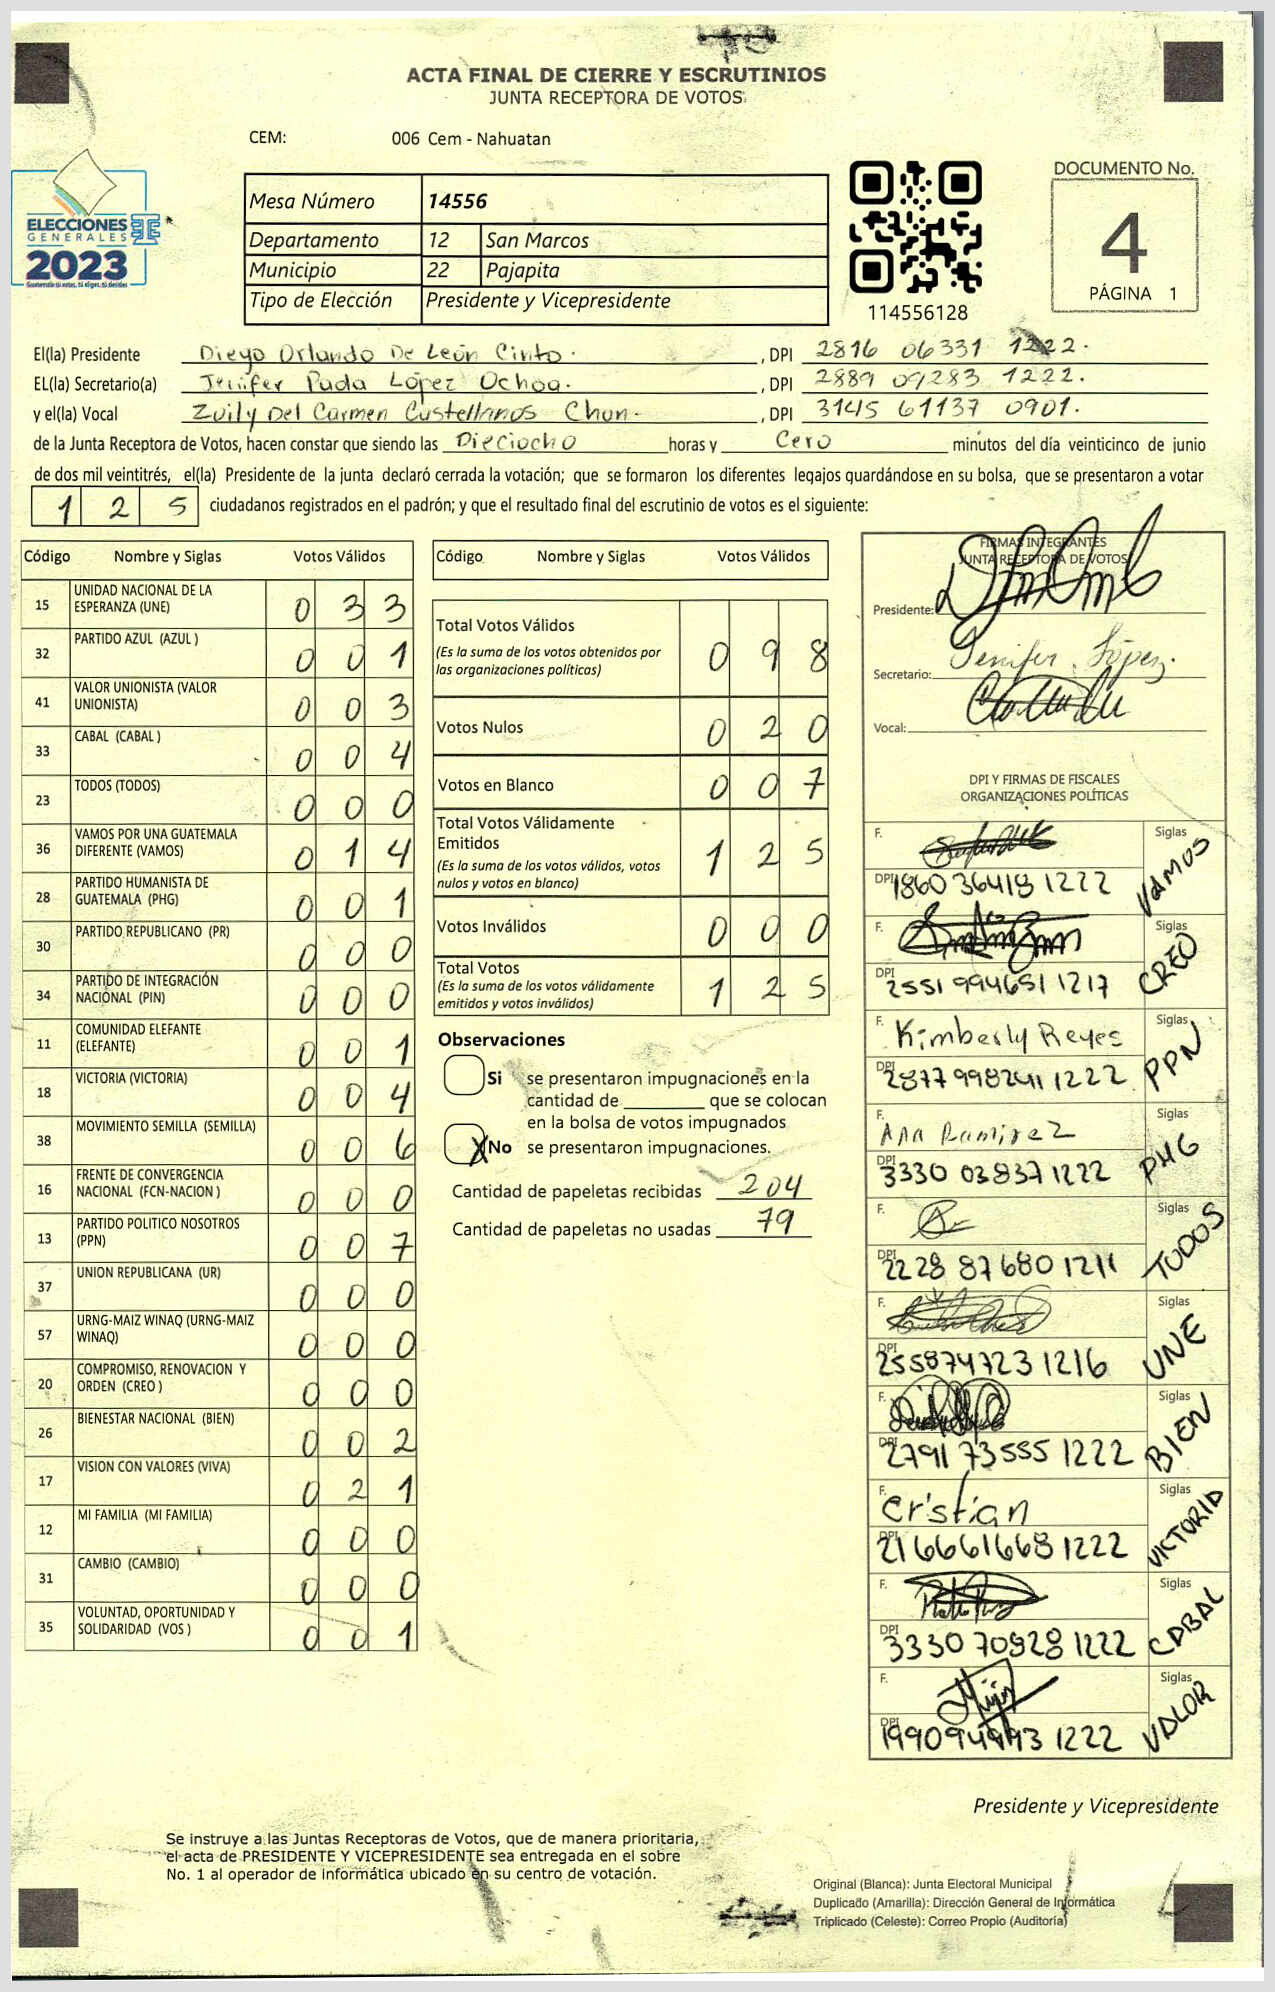 ACTA FINAL DE CIERRE Y ESCRUTINIOS
JUNTA RECEPTORA DE VOTOS
CEM: 006 Cem - Nahuatan
ELECCIONES
GENERALES
2023
Guatemala tú votas, tú eliges, tú decides
Mesa Número 14556
Departamento 12 San Marcos
Municipio 22 Pajapita
Tipo de Elección Presidente y Vicepresidente
114556128
DOCUMENTO No.
4
PÁGINA 1
El(la) Presidente Diego Orlando De León Cinto. , DPI 2816 06331 1222.
EL(la) Secretario(a) Jenifer Pada López Ochoa. , DPI 2889 09283 1222.
y el(la) Vocal Zuily Del Carmen Custellanos Chun. , DPI 3145 61137 0901.
de la Junta Receptora de Votos, hacen constar que siendo las Dieciocho horas y Cero minutos del día veinticinco de junio
de dos mil veintitrés, el(la) Presidente de la junta declaró cerrada la votación; que se formaron los diferentes legajos quardándose en su bolsa, que se presentaron a votar
1 2 5 ciudadanos registrados en el padrón; y que el resultado final del escrutinio de votos es el siguiente:
Código Nombre y Siglas Votos Válidos
15 UNIDAD NACIONAL DE LA ESPERANZA (UNE) 0 3 3
32 PARTIDO AZUL (AZUL ) 0 0 1
41 VALOR UNIONISTA (VALOR UNIONISTA) 0 0 3
33 CABAL (CABAL ) 0 0 4
23 TODOS (TODOS) 0 0 0
36 VAMOS POR UNA GUATEMALA DIFERENTE (VAMOS) 0 1 4
28 PARTIDO HUMANISTA DE GUATEMALA (PHG) 0 0 1
30 PARTIDO REPUBLICANO (PR) 0 0 0
34 PARTIDO DE INTEGRACIÓN NACIONAL (PIN) 0 0 0
11 COMUNIDAD ELEFANTE (ELEFANTE) 0 0 1
18 VICTORIA (VICTORIA) 0 0 4
38 MOVIMIENTO SEMILLA (SEMILLA) 0 0 6
16 FRENTE DE CONVERGENCIA NACIONAL (FCN-NACION ) 0 0 0
13 PARTIDO POLITICO NOSOTROS (PPN) 0 0 7
37 UNION REPUBLICANA (UR) 0 0 0
57 URNG-MAIZ WINAQ (URNG-MAIZ WINAQ) 0 0 0
20 COMPROMISO, RENOVACION Y ORDEN (CREO ) 0 0 0
26 BIENESTAR NACIONAL (BIEN) 0 0 2
17 VISION CON VALORES (VIVA) 0 2 1
12 MI FAMILIA (MI FAMILIA) 0 0 0
31 CAMBIO (CAMBIO) 0 0 0
35 VOLUNTAD, OPORTUNIDAD Y SOLIDARIDAD (VOS ) 0 0 1
Código Nombre y Siglas Votos Válidos
Total Votos Válidos
(Es la suma de los votos obtenidos por las organizaciones políticas) 0 9 8
Votos Nulos 0 2 0
Votos en Blanco 0 0 7
Total Votos Válidamente Emitidos
(Es la suma de los votos válidos, votos nulos y votos en blanco) 1 2 5
Votos Inválidos 0 0 0
Total Votos
(Es la suma de los votos válidamente emitidos y votos inválidos) 1 2 5
Observaciones
Si se presentaron impugnaciones en la
cantidad de ________ que se colocan
en la bolsa de votos impugnados
X No se presentaron impugnaciones.
Cantidad de papeletas recibidas 204
Cantidad de papeletas no usadas 79
FIRMAS INTEGRANTES
JUNTA RECEPTORA DE VOTOS
Presidente:
Secretario: Jenifer López.
Vocal:
DPI Y FIRMAS DE FISCALES
ORGANIZACIONES POLÍTICAS
F. Siglas VAMOS
DPI 1860 36418 1222
F. Siglas CREO
DPI 2551 99465 1 1217
F. Kimberly Reyes Siglas PPN
DPI 2877 99824 1 1222
F. Ana Ramirez Siglas PHG
DPI 3330 03837 1222
F. Siglas TODOS
DPI 2228 87680 1211
F. Siglas UNE
DPI 2558747231216
F. Siglas BIEN
DPI 2791 73555 1222
F. Cristian Siglas VICTORIA
DPI 216661668 1222
F. Siglas CABAL
DPI 3330 70928 1222
F. Siglas VALOR
DPI 1222
Presidente y Vicepresidente
Se instruye a las Juntas Receptoras de Votos, que de manera prioritaria,
el acta de PRESIDENTE Y VICEPRESIDENTE sea entregada en el sobre
No. 1 al operador de informática ubicado en su centro de votación.
Original (Blanca): Junta Electoral Municipal
Duplicado (Amarilla): Dirección General de Informática
Triplicado (Celeste): Correo Propio (Auditoría)